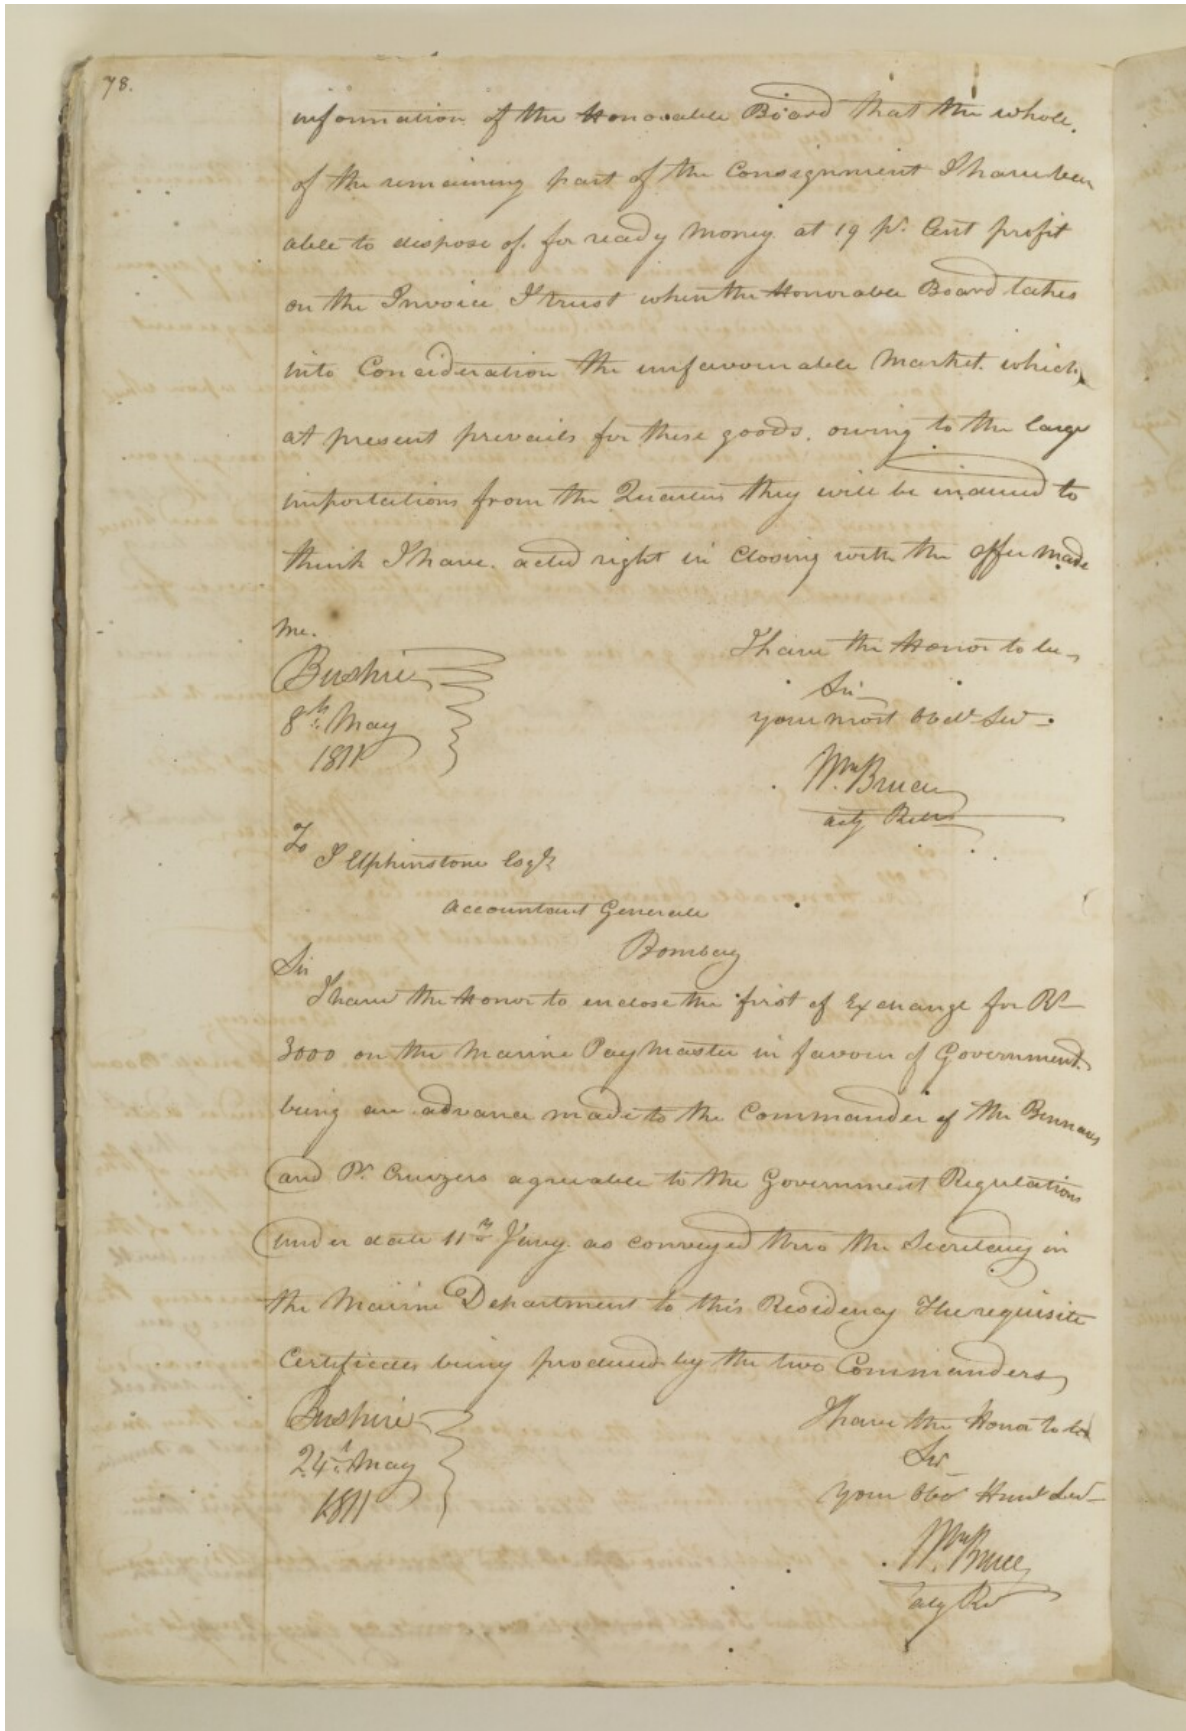 78.
information of the Honorable Board that the whole
of the remaining part of the Consignment I have been
able to dispose of for ready money at 19 pr. Cent profit
on the Invoice I trust when the Honorable Board takes
into Consideration the unfavourable Market which
at present prevails for these goods, owing to the large
importations from the they will be induced to
think I have acted right in Closing with the offer made
me.
I have the Honor to be
Bushire
Sir
8th May
your most Obdt Sert
1811
Wm Bruce
actg Resdt
To
J Elphinstone Esqr
Accountant General
Bombay
Sir
I have the Honor to enclose the first of Exchange for Rs
3000 on the Marine Pay Master in favour of Government
being an advance made to the Commander of the Benares
and Pr. Cruizers agreeable to the Government Regulations
under date 11th Jany. as conveyed thro the Secretary in
the Marine Department to this Residency The requisite
Certificates being produced by the two Commanders
Bushire
I have the Honor to be
24th May
Sir
1811
your Obdt Humb Sert
Wm Bruce
actg Rt